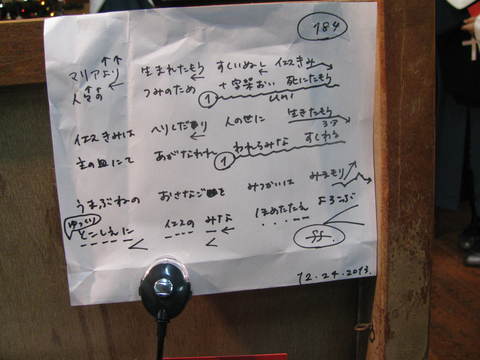 184
マリアより 生まれたもう すくいぬし イエスきみ
人々の つみのため 十字架おい 死にたもう
①
イエスきみは へりくだり 人の世に 生きたもう
主の血にて あがなわれ われらみな すくわる
①
うまぶねの おさなごを みつかいは みまもり
ゆっくり
とこしえに イエスの みな ほめたたえ よろこぶ
ff.
12.24.2013.